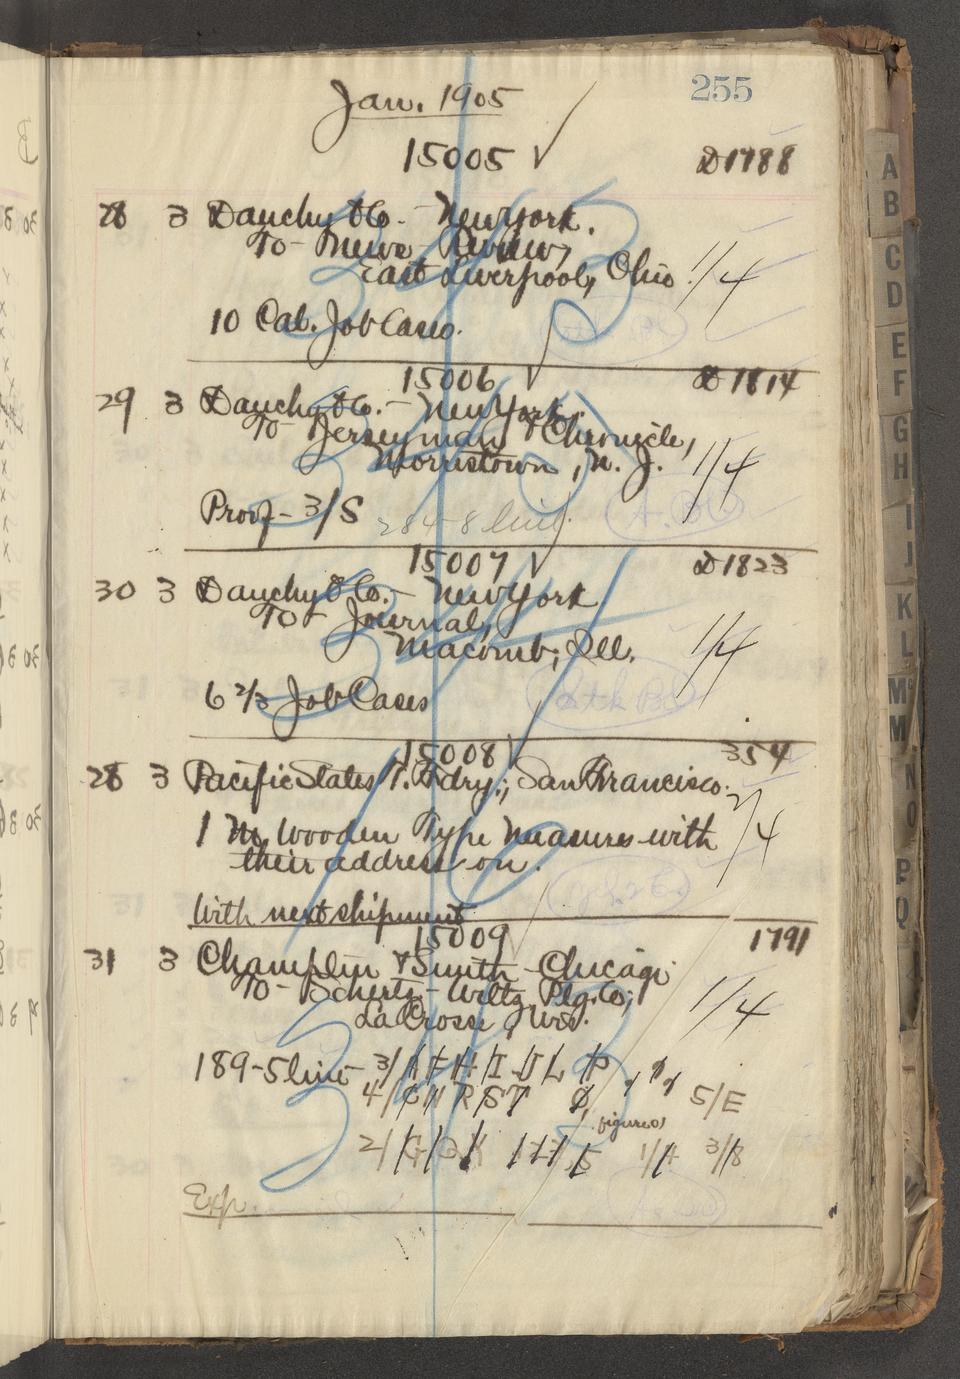 255
Jan. 1905
15005 ✓ D1788
28 3 Dauchy & Co. - New York.
To - News Review,
East Liverpool, Ohio. 1/4
10 Cal. Job Cases.
15006 ✓ D1814
29 3 Dauchy & Co. - New York.
To - Jerseyman & Chronicle,
Morristown, N. J. 1/4
Proof - 3/S 284-8 line.
15007 ✓ D1823
30 3 Dauchy & Co. - New York
To - Journal,
Macomb, Ill. 1/4
6 2/3 Job Cases
15008 ✓ 354
28 3 Pacific States T. Fdry., San Francisco.
2/4
1 M Wooden Type Measures with
their address on.
With next shipment
15009 1791
31 3 Champlin & Smith - Chicago
To - Wiltz Ptg. Co.,
La Crosse, Wis. 1/4
189-5 line - 3/A F H I U L P
4/C N R S T 5/E
figures
2/G O K 1/A 3/8
Exp.
A
B
C
D
E
F
G
H
I
J
K
L
M
M
N
O
P
Q